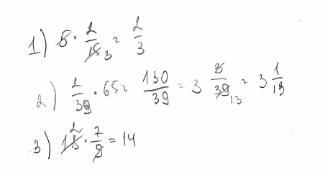 1) 5 · 2/15 3 = 2/3
2) 2/39 · 65 = 130/39 = 3 3/39 13 = 3 1/13
3) 18 2 · 7/9 = 14